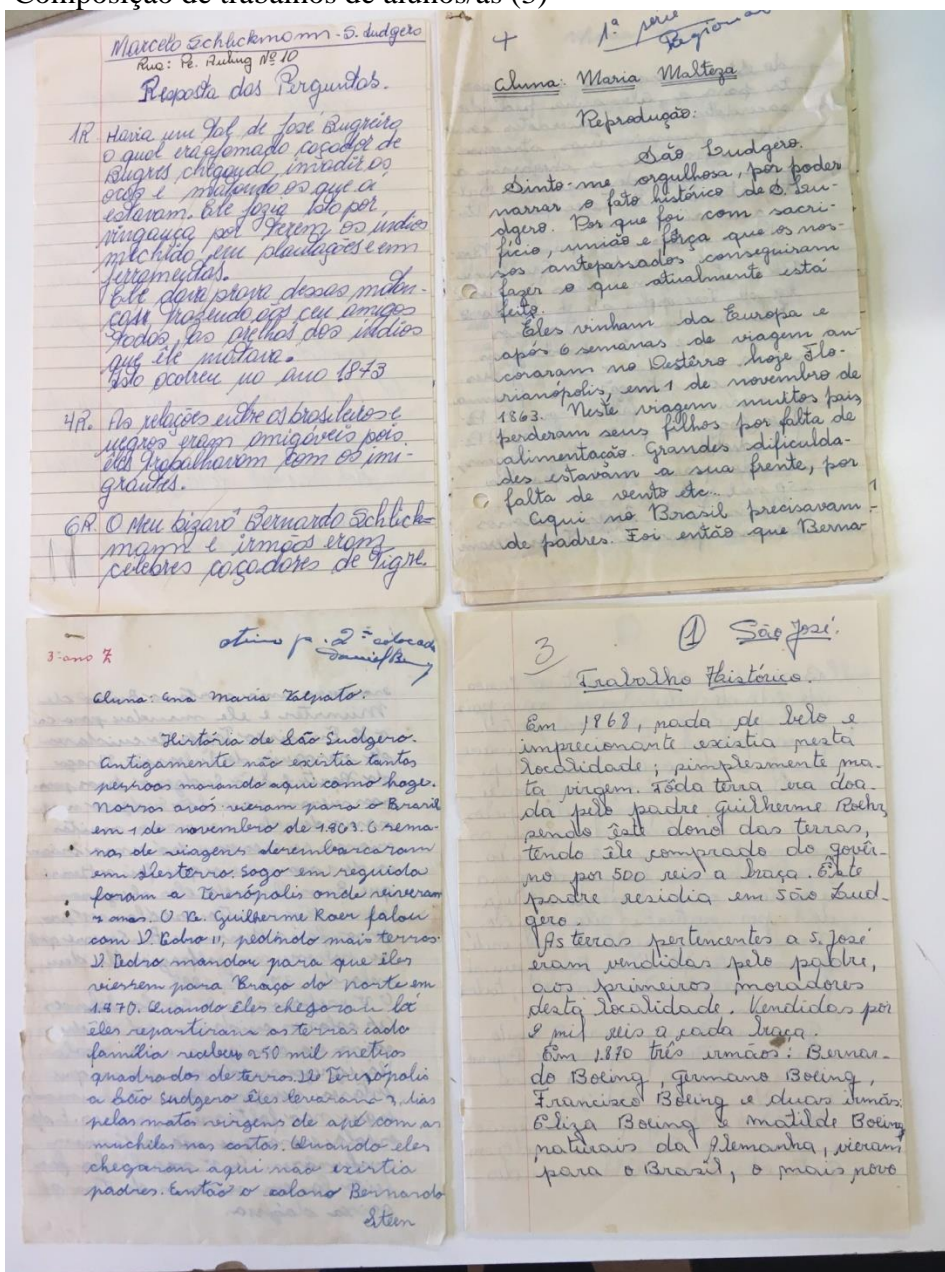 Composição de trabalhos de alunos/as (3)
Marcelo Schlickmann - S. Ludgero
Rua: Pe. Nº 10
Resposta das Perguntas.
1R Havia um tal de José Bugreiro
o qual era afamado caçador de
Bugres, chegando, invadir as
ocas e matando os que ai
estavam. Ele fazia isto por
vingança por terem os indios
mechido em plantações e em
ferramentas.
Ele dava prova dessas matan-
cas, trazendo aos ceu amigos
todas, as orelhas dos indios
que êle matava.
Isto ocoreu no ano 1873
4R. As relações entre os brasileiros e
negros eram amigáveis pois
eles trabalhavam com os imi-
grantes.
6R. O Meu bizavô Bernardo Schlick-
mann e irmãos eram
celebres caçadores de Tigre.
4 1ª série
Aluna: Maria Malteza
Reprodução:
São Ludgero.
Sinto-me orgulhosa, por poder
narrar o fato histórico de S. Lu-
dgero. Por que foi com sacri-
fício, união e fôrça que os nos-
sos antepassados conseguiram
fazer o que atualmente está
feito.
Eles vinham da Europa e
após 6 semanas de viagem an-
coraram no Destêrro hoje Flo-
rianópolis, em 1 de novembro de
1863. Neste viagem muitos pais
perderam seus filhos por falta de
alimentacão. Grandes dificulda-
des estavam a sua frente, por
falta de vento etc...
Aqui no Brasil precisavam
de padres. Foi então que Berna-
3º ano
2º colocado
Aluna: Ana Maria
História de São Ludgero.
Antigamente não existia tantos
pessoas morando aqui como hoge.
Nossos avós vieram para o Brasil
em 1 de novembro de 1.863. 6 sema-
nas de viagens desembarcaram
em Desterro. Logo em reguida
foram a Teresópolis onde
anos. O Pe. Guilherme Roer falou
com D. Pedro II, pedindo mais terras.
D. Pedro mandou para que êles
viessem para Braço do Norte em
1.870. Quando êles chegaram lá
êles repartiram as terras cada
família recebeu 250 mil metros
quadrados de terras. De Teresópolis
a São Ludgero êles levaram dias
pelas matas virgens de apé com as
muchilas nas costas. Quando eles
chegaram aqui não existia
padres. Então o colono Bernardo
Steen
3 1 São José.
Trabalho Histórico.
Em 1868, nada de belo e
imprecionante existia nesta
localidade; simplesmente ma-
ta virgem. Tôda terra era doa-
da pelo padre Guilherme Roehr,
sendo êste dono das terras,
tendo êle comprado do govêr-
no por 500 reis a braça. Êste
padre residia em São Lud-
gero.
As terras pertencentes a S. José
eram vendidas pelo padre,
aos primeiros moradores
desta localidade. Vendidas por
2 mil reis a cada braça.
Em 1.870 três irmãos: Bernar-
do Boeing, Germano Boeing,
Francisco Boeing e duas irmãs:
Eliza Boeing e matilde Boeing
naturais da Alemanha, vieram
para o Brazil, o mais novo